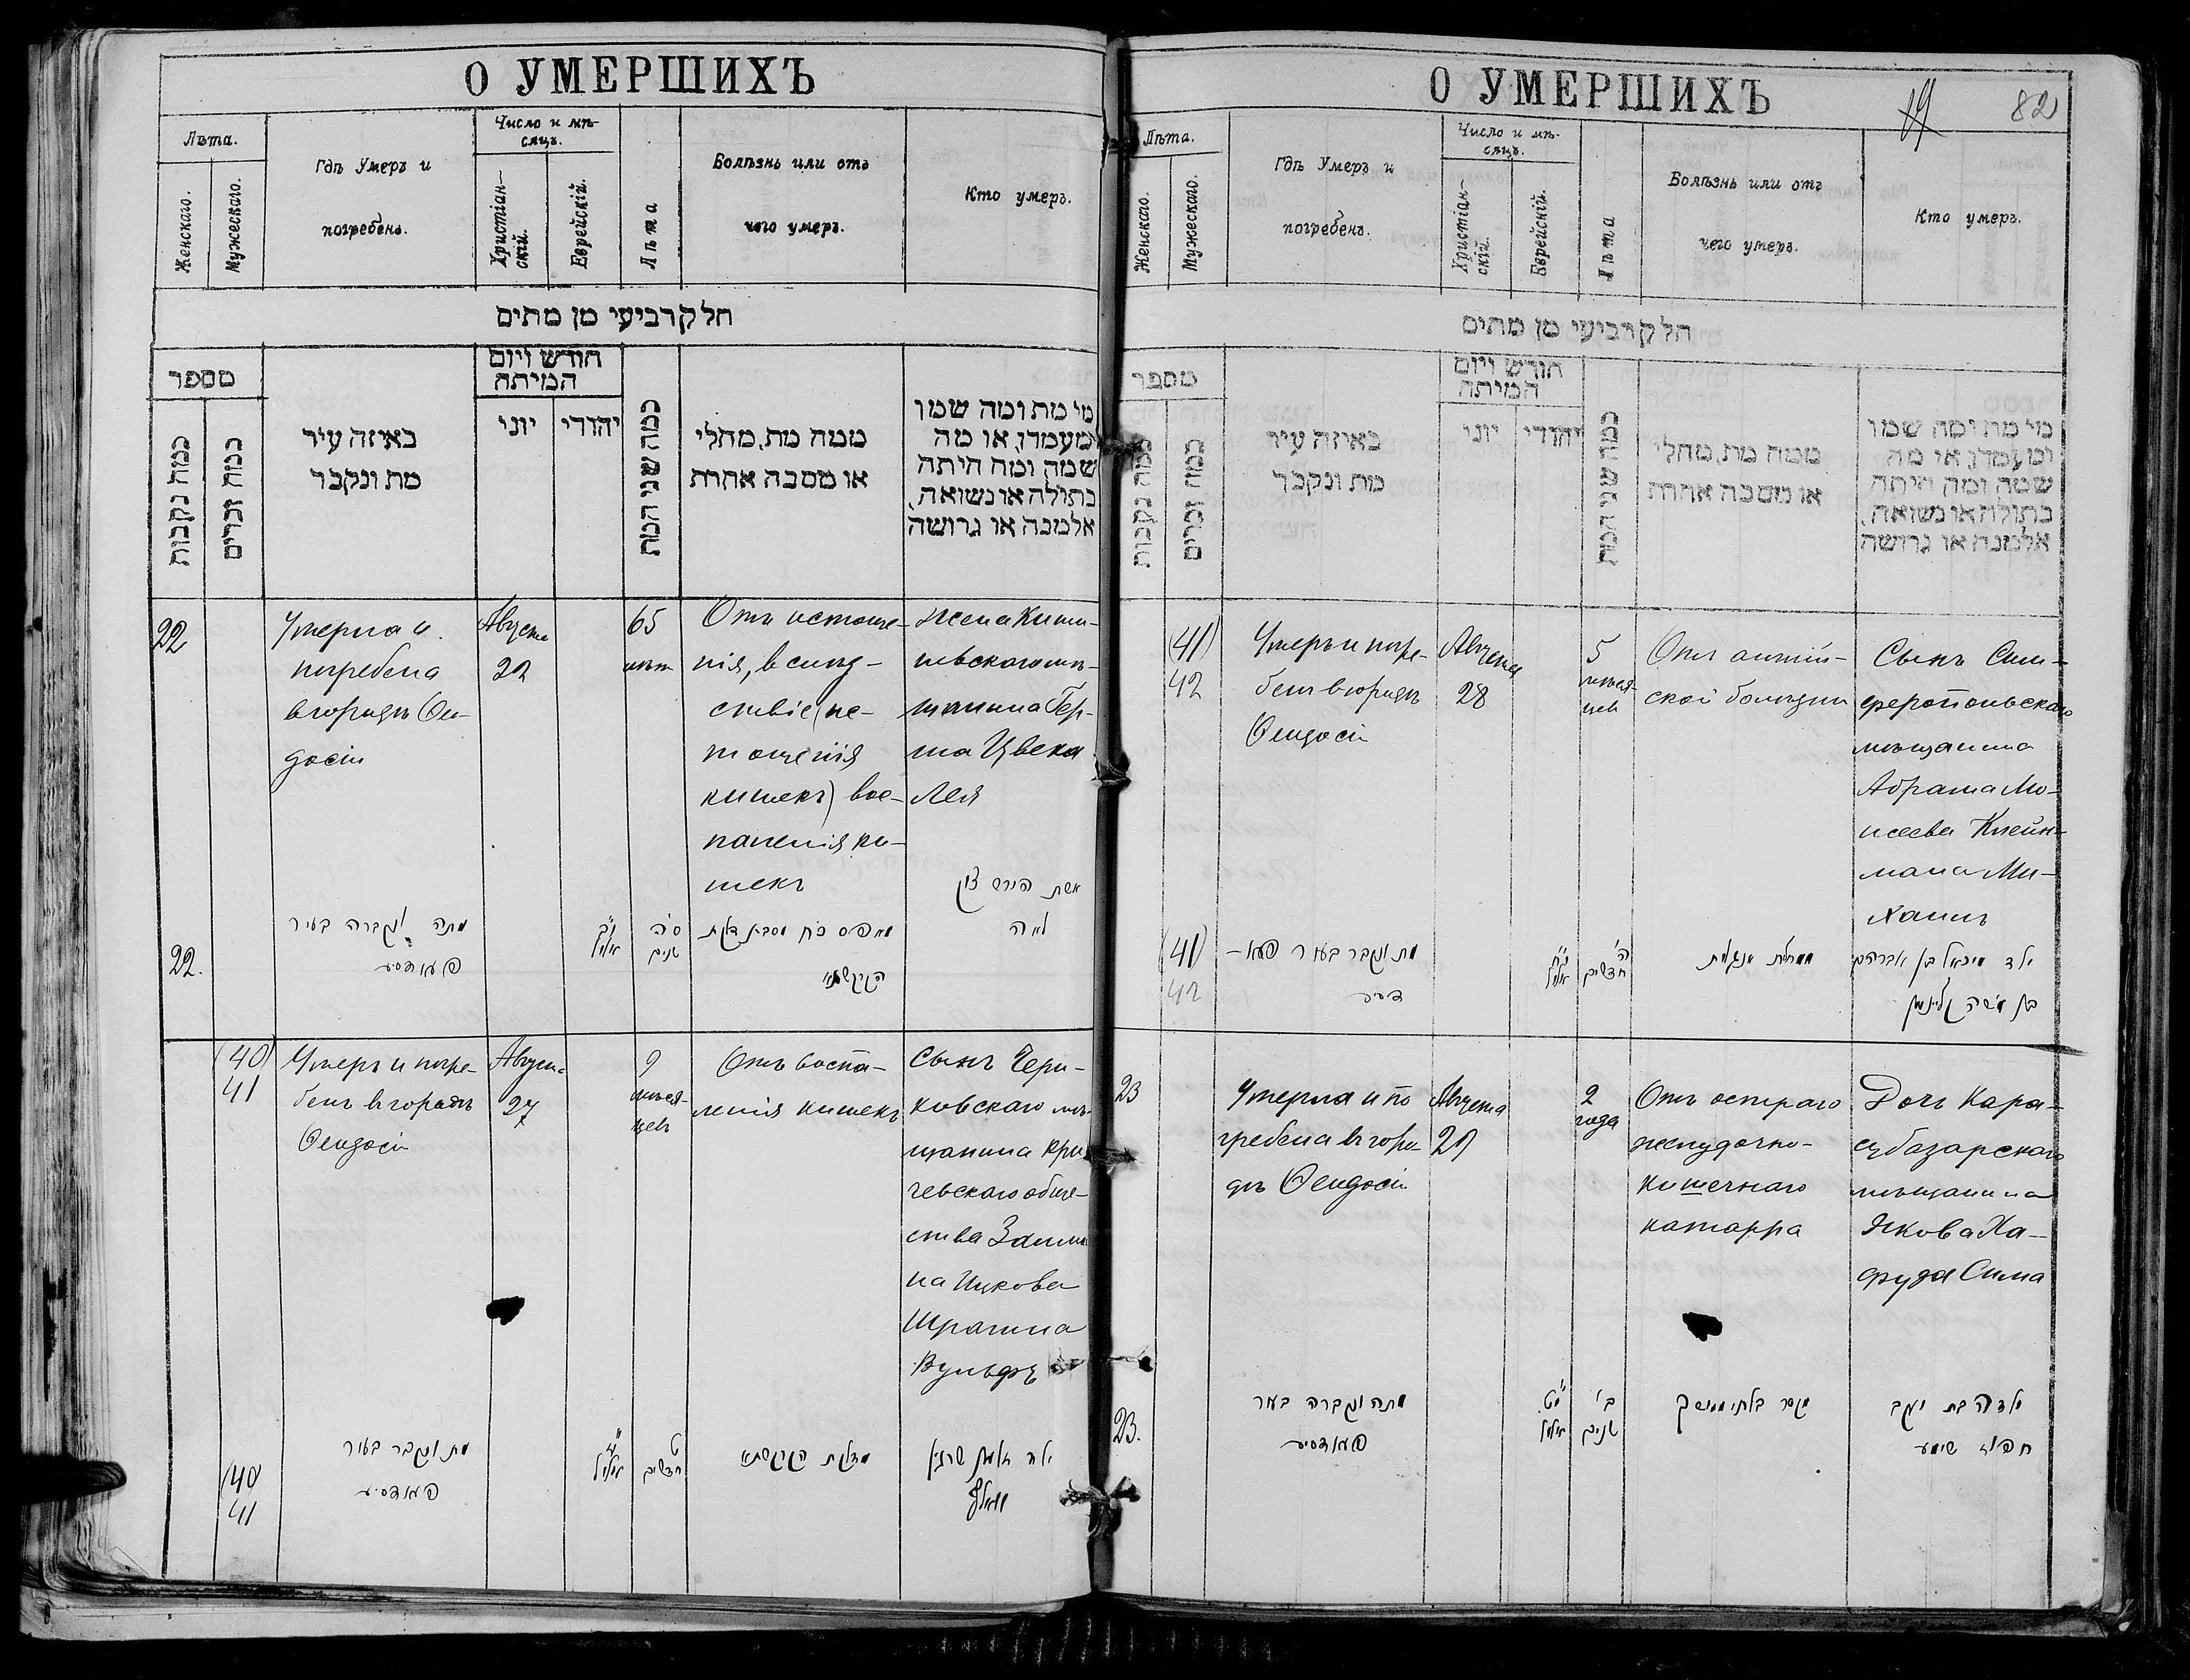 О УМЕРШИХЪ
Лѣта.
Женскаго.
Мужескаго.
Гдѣ Умеръ и
погребенъ.
Число и мѣ-
сяцъ.
Христіан-
скій.
Еврейскій.
Лѣта
Болѣзнь или отъ
чего умеръ.
Кто умеръ.
חלק רביעי מן מתים
מספר
כמה נקבות
כמה זכרים
באיזה עיר
מת ונקבר
חודש ויום
המיתה
יוני
יהודי
כמה שני המת
ממה מת, מחלי
או מסבה אחרת
מי מת ומה שמו
ומעמדו, או מה
שמה ומה היתה
בתולה או נשואה,
אלמנה או גרושה
22
Умерла и
погребена
въ городѣ Ѳеи-
досіи
Августа
22
65
лѣтъ
Отъ истоще-
нія, вслѣд-
ствіе (ис-
тощенія
кишекъ) вос-
паленія ки-
шекъ
Жена Киши-
невскаго мѣ-
щанина Гер-
ша Цвека
Лея
22.
מתה ונקברה בעיר
פעאדסיע
אלול
ס״ה
שנים
אשת הירש
לאה
(40)
41
Умеръ и погре-
бенъ въ городѣ
Ѳеидосіи
Августа
27
9
мѣся-
цевъ
Отъ воспа-
ленія кишекъ
Сынъ Чери-
ковскаго мѣ-
щанина Кри
чевскаго обще-
ства Залма
на Ицкова
Шрагина
Вульфъ
(40)
41
מת ונקבר בעיר
פעאדסיע
אלול
ט
חדשים
מדלקת הקישקע
ילד זלמן שרגין
וואלף
О УМЕРШИХЪ
82
Лѣта.
Женскаго.
Мужескаго.
Гдѣ Умеръ и
погребенъ.
Число и мѣ-
сяцъ.
Христіан-
скій.
Еврейскій.
Лѣта
Болѣзнь или отъ
чего умеръ.
Кто умеръ.
חלק רביעי מן מתים
מספר
כמה נקבות
כמה זכרים
באיזה עיר
מת ונקבר
חודש ויום
המיתה
יוני
יהודי
כמה שני המת
ממה מת, מחלי
או מסבה אחרת
מי מת ומה שמו
ומעמדו, או מה
שמה ומה היתה
בתולה או נשואה,
אלמנה או גרושה
(41)
42
Умеръ и погре-
бенъ въ городѣ
Ѳеидосіи
Августа
28
5
мѣся-
цевъ
Отъ англій-
ской болѣзни
Сынъ Сим-
феропольскаго
мѣщанина
Абрама Мо-
исеева Клейн-
мана Ми-
хаилъ
(41)
42
מת ונקבר בעיר פעא-
דסיע
אלול
ה'
חדשים
ממחלת אנגלית
ילד מיכאל בן אברהם
בן משה קליינמאן
23
Умерла и по
гребена въ горо-
дѣ Ѳеидосіи
Августа
29
2
года
Отъ остраго
желудочно-
кишечнаго
катарра
Дочь Кара-
субазарскаго
мѣщанина
Якова Ха-
фуза Сима
23.
מתה ונקברה בעיר
פעאדסיע
אלול
ב'
שנים
ילדה בת יעקב
חפוז סימע